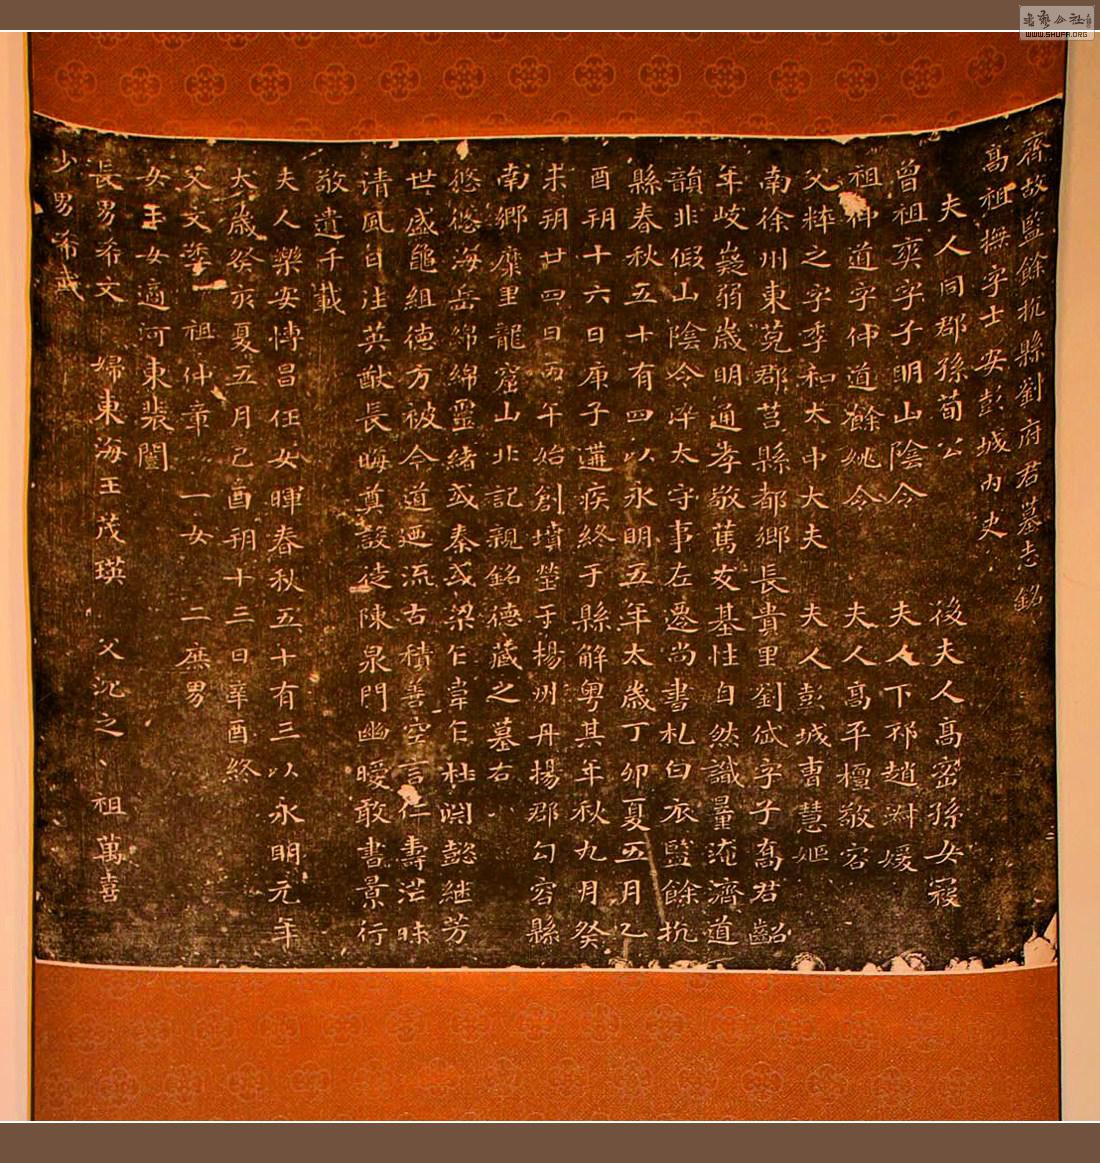 齊故監餘杭縣劉府君墓志銘
高祖撫字士安彭城內史
夫人同郡孫荀公 後夫人高密孫女寢
曾祖爽字子明山陰令 夫人下邳趙淑媛
祖仲道字仲道餘姚令 夫人高平檀敬容
父粹之字季和太中大夫 夫人彭城曹慧姬
南徐州東莞郡莒縣都鄉長貴里劉岱字子喬君齠
年岐嶷弱歲明通孝敬篤友基性自然識量淹濟道
韻非假山陰令淬太守事左遷尚書札白衣監餘杭
縣春秋五十有四以永明五年太歲丁卯夏五月乙
酉朔十六日庚子遘疾終于縣解粵其年秋九月癸
未朔廿四日丙午始創墳塋于楊州丹楊郡勾容縣
南鄉糜里龍窟山北記親銘德藏之墓右
悠悠海岳綿綿靈緒或秦或梁乍韋乍杜淵懿継芳
世盛龜組德方被今道迺流古積善空言仁壽茫昧
清風日注英猷長晦奠設徒陳泉門幽曖敢書景行
敬遺千載
夫人樂安愽昌任女暉春秋五十有三以永明元年
太歲癸亥夏五月己酉朔十三日辛酉終
父文季 祖仲章 一女 二庶男
女玉女適河東裴闓
長男希文 婦東海王茂瑛 父沉之 祖萬喜
少男希武
WWW.SHUFA.ORG